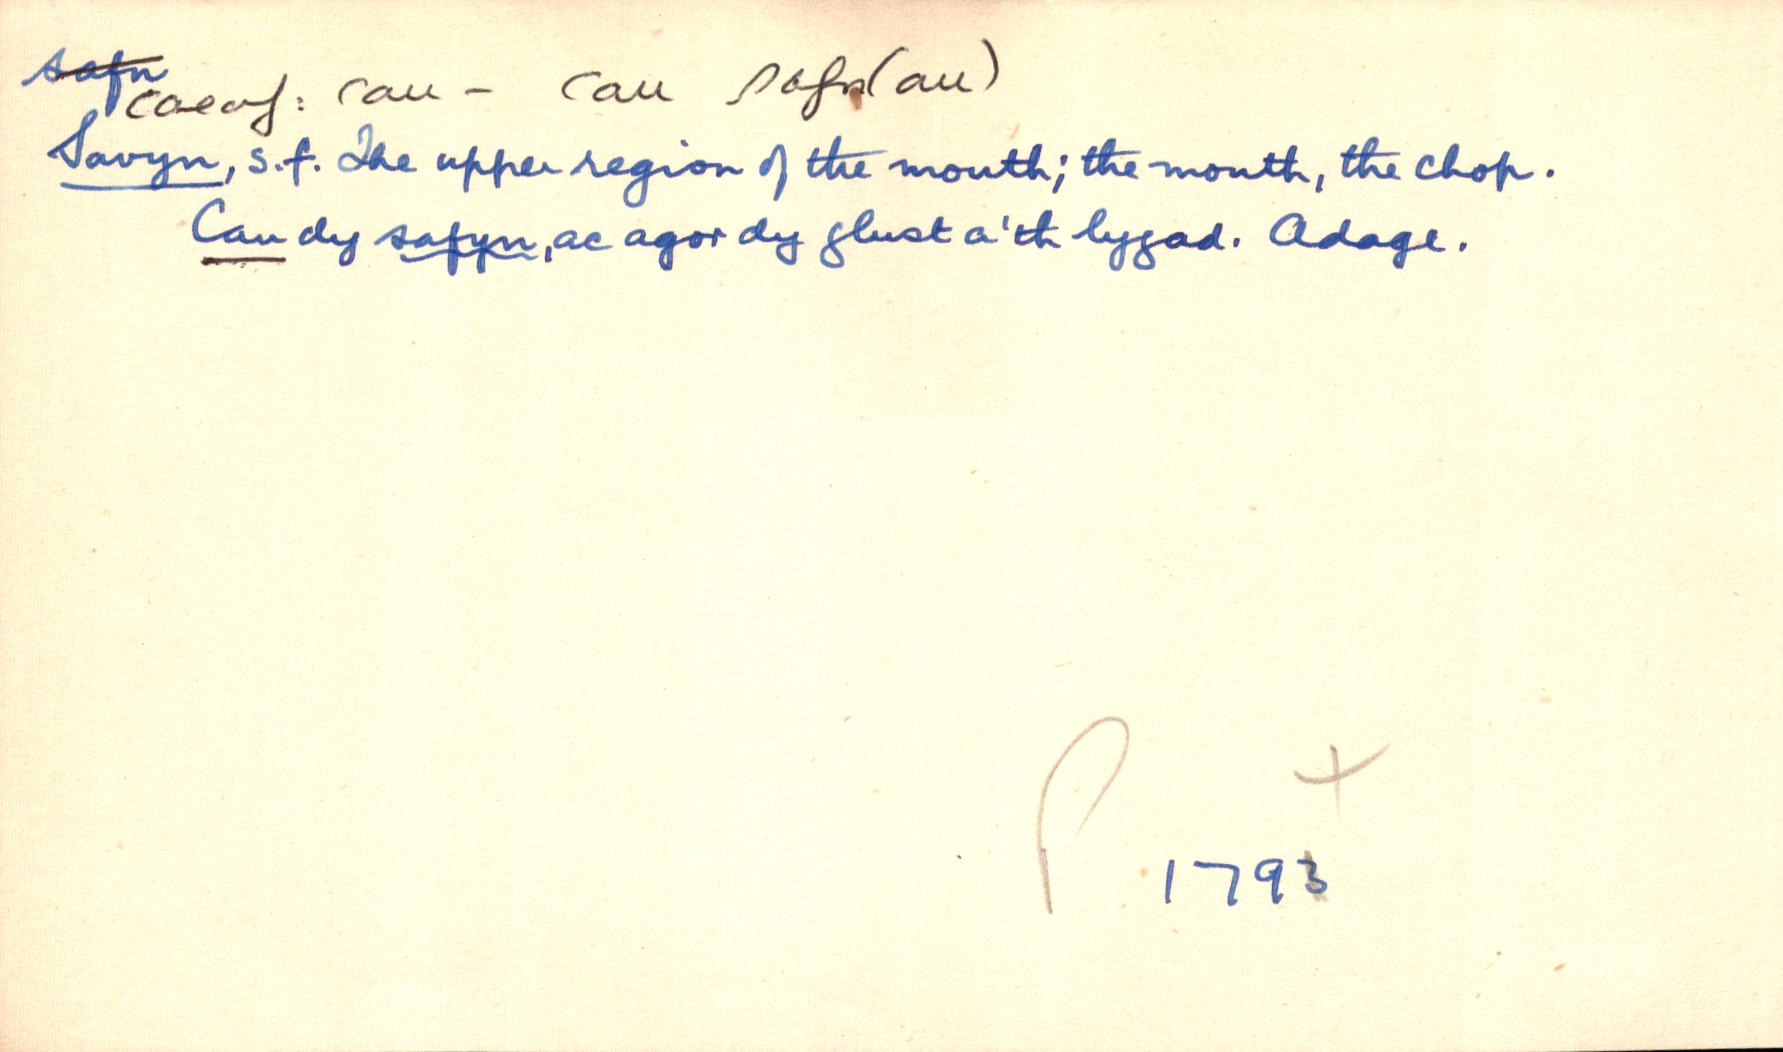 safn
caeaf: cau - cau safn(au)
Savyn, s.f. The upper region of the mouth; the mouth, the chop.
Cau dy safyn, ac agor dy glust a'th lygad. Adage.
P +
1793